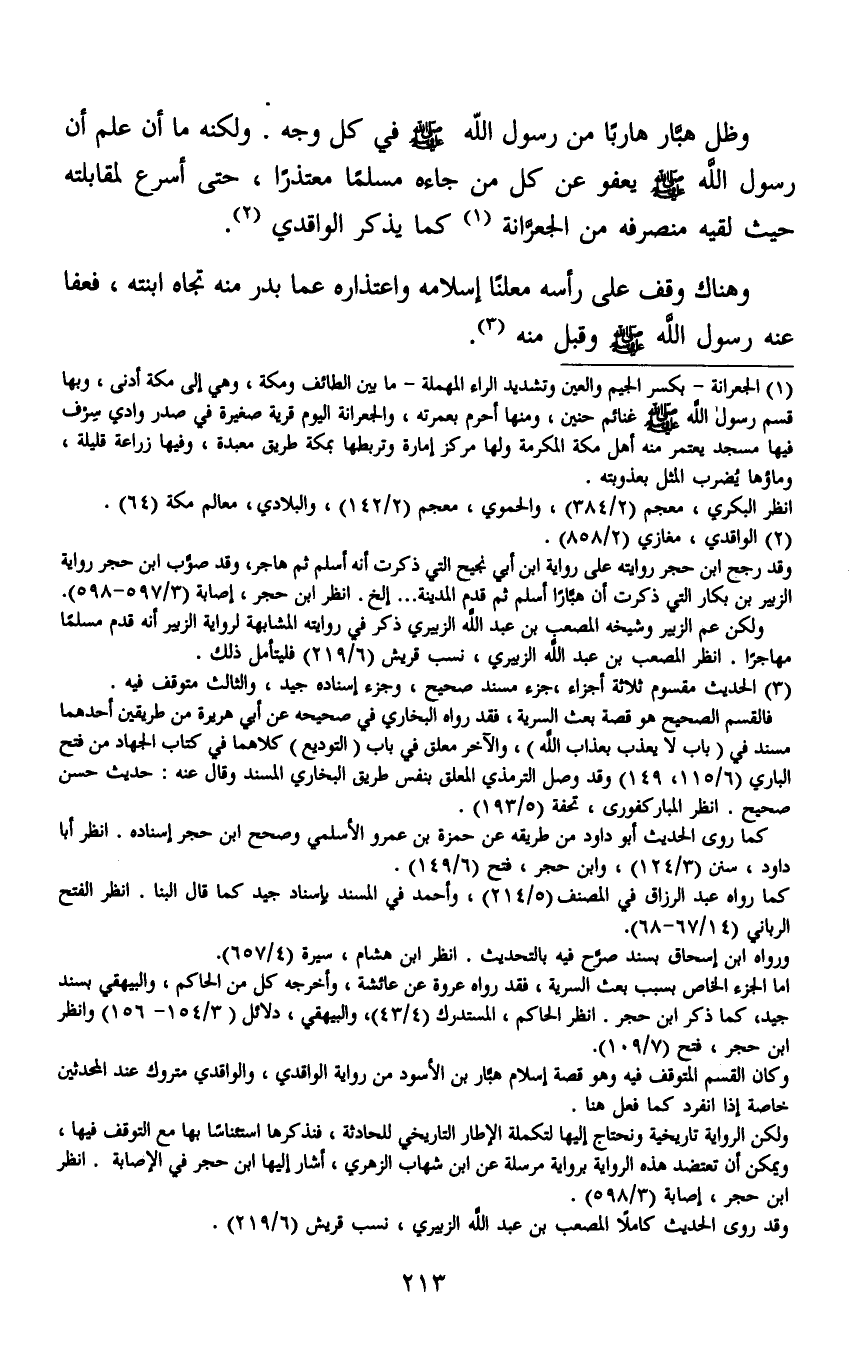 وظل هبَّار هاربًا من رسول اللَّه ﷺ في كل وجه . ولكنه ما أن علم أن
رسول اللَّه ﷺ يعفو عن كل من جاءه مسلمًا معتذرًا ، حتى أسرع لمقابلته
حيث لقيه منصرفه من الجعرَّانة (١) كما يذكر الواقدي (٢).
وهناك وقف على رأسه معلنًا إسلامه واعتذاره عما بدر منه تجاه ابنته ، فعفا
عنه رسول اللَّه ﷺ وقبل منه (٣).
(١) الجعرانة – بكسر الجيم والعين وتشديد الراء المهملة – ما بين الطائف ومكة ، وهي إلى مكة أدنى ، وبها
قسم رسول اللَّه ﷺ غنائم حنين ، ومنها أحرم بعمرته ، والجعرانة اليوم قرية صغيرة في صدر وادي سِرَف
فيها مسجد يعتمر منه أهل مكة المكرمة ولها مركز إمارة وتربطها بمكة طريق معبدة ، وفيها زراعة قليلة ،
وماؤها يُضرب المثل بعذوبته .
انظر البكري ، معجم (٣٨٤/٢) ، والحموي ، معجم (١٤٢/٢) ، والبلادي، معالم مكة (٦٤) .
(٢) الواقدي ، مغازي (٨٥٨/٢) .
وقد رجح ابن حجر روايته على رواية ابن أبي نجيح التي ذكرت أنه أسلم ثم هاجر، وقد صوَّب ابن حجر رواية
الزبير بن بكار التي ذكرت أن هبَّارًا أسلم ثم قدم المدينة... إلخ. انظر ابن حجر ، إصابة (٥٩٧/٣–٥٩٨).
ولكن عم الزبير وشيخه المصعب بن عبد اللَّه الزبيري ذكر في روايته المشابهة لرواية الزبير أنه قدم مسلمًا
مهاجرًا . انظر المصعب بن عبد اللَّه الزبيري ، نسب قريش (٢١٩/٦) فليتأمل ذلك .
(٣) الحديث مقسوم ثلاثة أجزاء ،جزء مسند صحيح ، وجزء إسناده جيد ، والثالث متوقف فيه .
فالقسم الصحيح هو قصة بعث السرية ، فقد رواه البخاري في صحيحه عن أبي هريرة من طريقين أحدهما
مسند في ( باب لا يعذب بعذاب اللَّه ) ، والآخر معلق في باب ( التوديع ) كلاهما في كتاب الجهاد من فتح
الباري (١١٥/٦، ١٤٩) وقد وصل الترمذي المعلق بنفس طريق البخاري المسند وقال عنه : حديث حسن
صحيح . انظر المباركفورى ، تحفة (١٩٣/٥) .
كما روى الحديث أبو داود من طريقه عن حمزة بن عمرو الأسلمي وصحح ابن حجر إسناده . انظر أبا
داود ، سنن (١٢٤/٣) ، وابن حجر ، فتح (١٤٩/٦) .
كما رواه عبد الرزاق في المصنف (٢١٤/٥) ، وأحمد في المسند بإسناد جيد كما قال البنا . انظر الفتح
الرباني (٦٧/١٤–٦٨).
ورواه ابن إسحاق بسند صرَّح فيه بالتحديث . انظر ابن هشام ، سيرة (٦٥٧/٤).
اما الجزء الخاص بسبب بعث السرية ، فقد رواه عروة عن عائشة ، وأخرجه كل من الحاكم ، والبيهقي بسند
جيد، كما ذكر ابن حجر . انظر الحاكم ، المستدرك (٤٣/٤)، والبيهقي ، دلائل ( ١٥٤/٣– ١٥٦) وانظر
ابن حجر ، فتح (١٠٩/٧).
وكان القسم المتوقف فيه وهو قصة إسلام هبَّار بن الأسود من رواية الواقدي ، والواقدي متروك عند المحدثين
خاصة إذا انفرد كما فعل هنا .
ولكن الرواية تاريخية ونحتاج إليها لتكملة الإطار التاريخي للحادثة ، فنذكرها استئناسًا بها مع التوقف فيها ،
ويمكن أن تعتضد هذه الرواية برواية مرسلة عن ابن شهاب الزهري ، أشار إليها ابن حجر في الإصابة . انظر
ابن حجر ، إصابة (٥٩٨/٣) .
وقد روى الحديث كاملًا المصعب بن عبد اللَّه الزبيري ، نسب قريش (٢١٩/٦) .
٢١٣